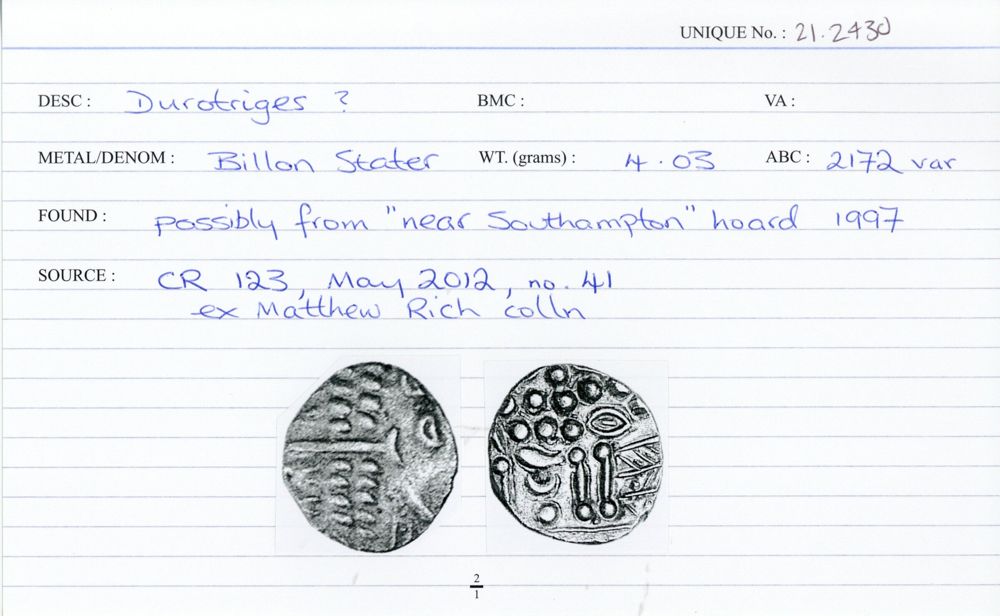 UNIQUE No. : 21.2430
DESC : Durotriges ? BMC : VA :
METAL/DENOM : Billon Stater WT. (grams) : 4.03 ABC : 2172 var
FOUND : possibly from "near Southampton" hoard 1997
SOURCE : CR 123, May 2012, no. 41
ex Matthew Rich colln
2
1